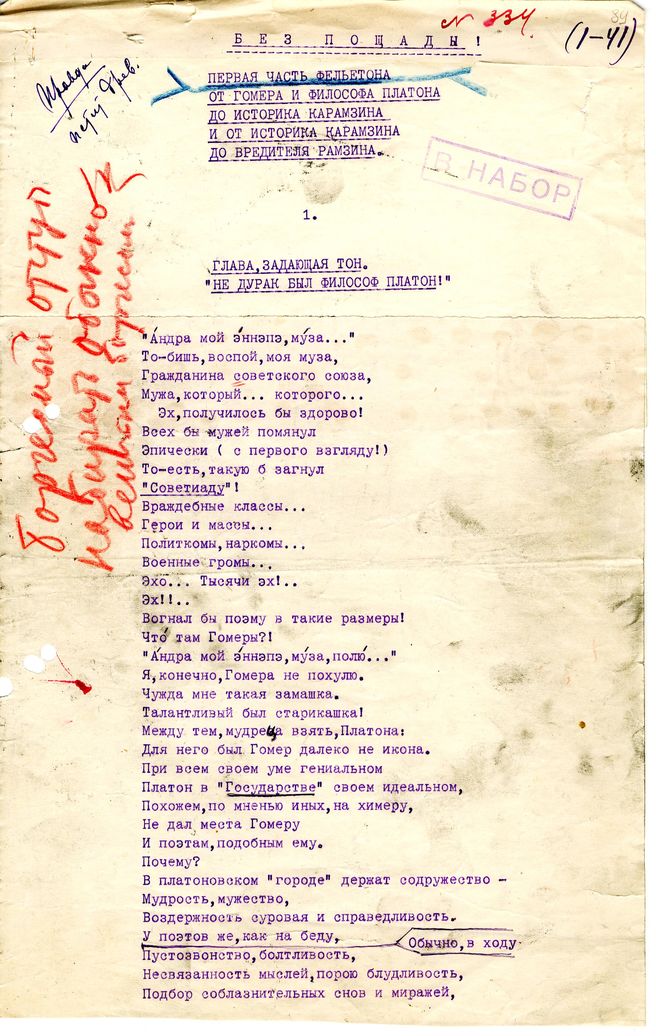 № 334
34
(1-41)
Правда
БЕЗ ПОЩАДЫ!
ПЕРВАЯ ЧАСТЬ ФЕЛЬЕТОНА
ОТ ГОМЕРА И ФИЛОСОФА ПЛАТОНА
ДО ИСТОРИКА КАРАМЗИНА
И ОТ ИСТОРИКА КАРАМЗИНА
ДО ВРЕДИТЕЛЯ РАМЗИНА.
В НАБОР
1.
ГЛАВА,ЗАДАЮЩАЯ ТОН.
"НЕ ДУРАК БЫЛ ФИЛОСОФ ПЛАТОН!"
набирать
"А́ндра мой э́ннэпэ,му́за..."
То-бишь,воспой,моя муза,
Гражданина советского союза,
Мужа,который... которого...
Эх,получилось бы здорово!
Всех бы мужей помянул
Эпически ( с первого взгляду!)
То-есть,такую б загнул
"Советиаду"!
Враждебные классы...
Герои и массы...
Политкомы,наркомы...
Военные громы...
Эхо... Тысячи эх!..
Эх!!..
Вогнал бы поэму в такие размеры!
Что́ там Гомеры?!
"А́ндра мой э́ннэпэ,му́за,полю́..."
Я,конечно,Гомера не похулю.
Чужда мне такая замашка.
Талантливый был старикашка!
Между тем,мудреца взять,Платона:
Для него был Гомер далеко не икона.
При всем своем уме гениальном
Платон в "Государстве" своем идеальном,
Похожем,по мненью иных,на химеру,
Не дал места Гомеру
И поэтам,подобным ему.
Почему?
В платоновском "городе" держат содружество -
Мудрость,мужество,
Воздержность суровая и справедливость.
У поэтов же,как на беду,
Обычно,в ходу
Пустозвонство,болтливость,
Несвязанность мыслей,порою блудливость,
Подбор соблазнительных снов и миражей,